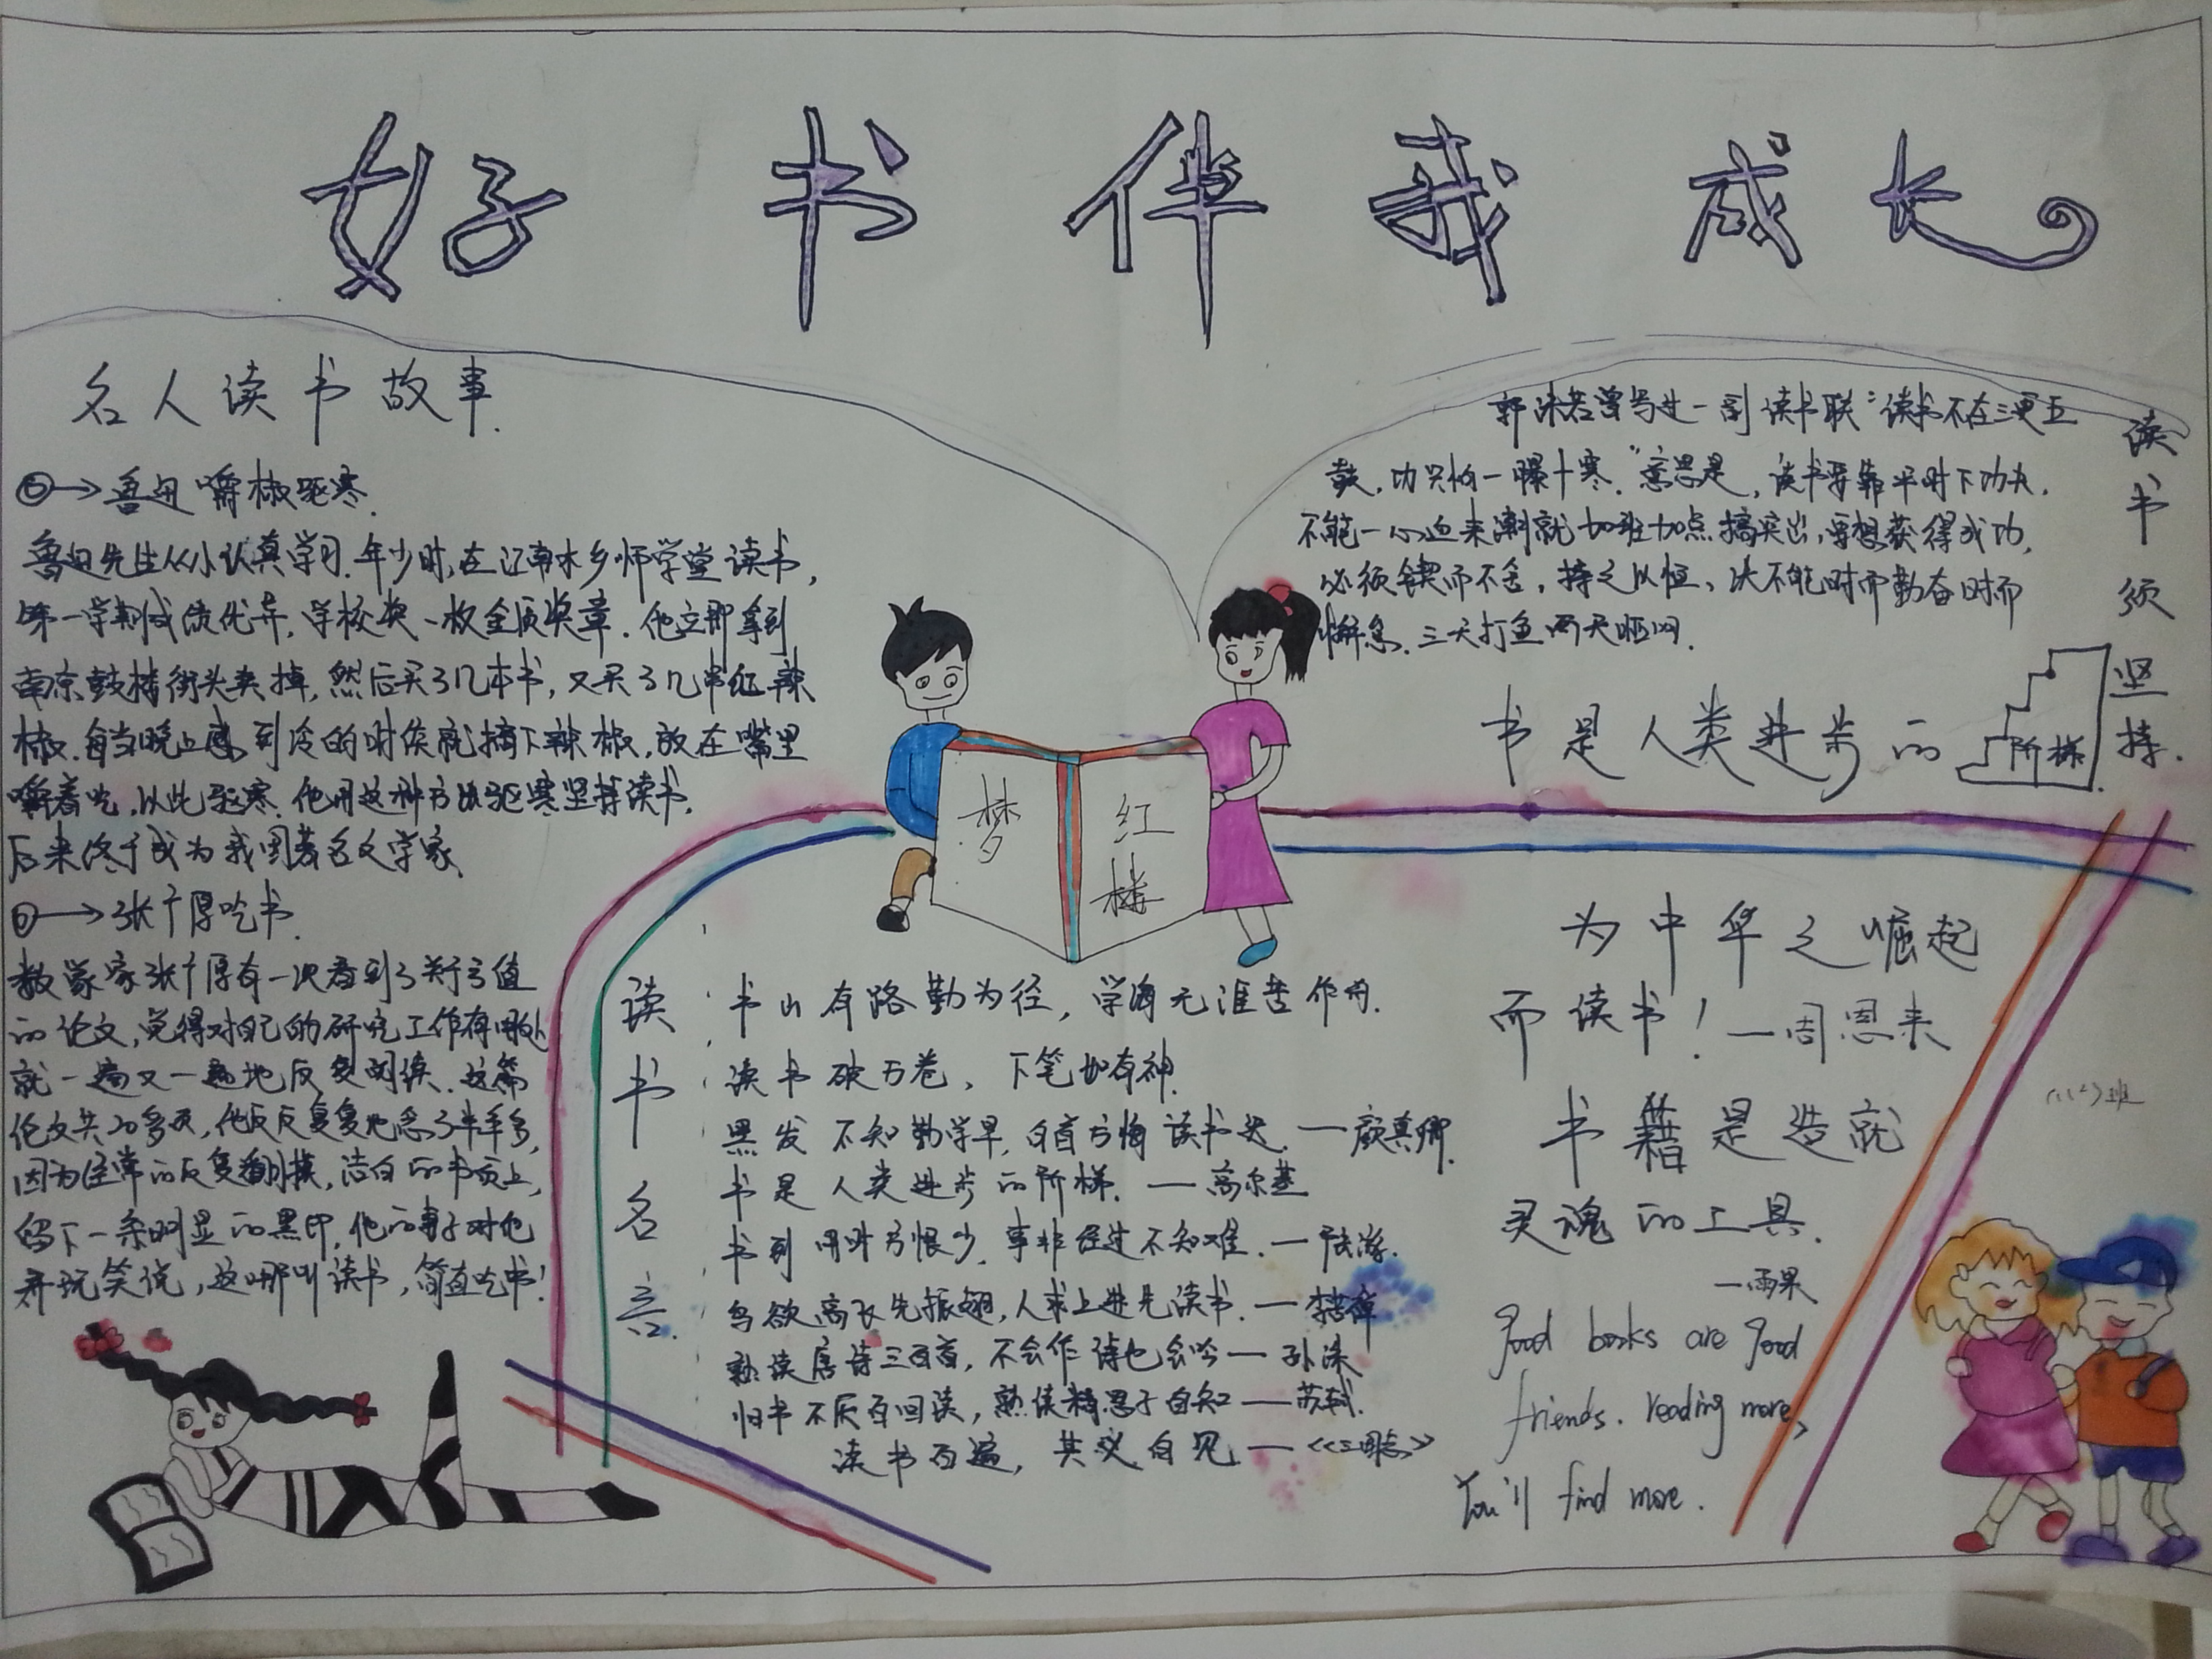 好书伴我成长
名人读书故事.
→鲁迅嚼椒驱寒.
鲁迅先生从小认真学习.年少时,在江南水乡师学堂读书,
第一学期成绩优异,学校奖一枚金质奖章.他立即拿到
南京鼓楼街头卖掉,然后买了几本书,又买了几串红辣
椒.每当晚上感到冷的时侯就摘下辣椒,放在嘴里
嚼着吃,以此驱寒.他用这种方法驱寒坚持读书.
后来终于成为我国著名文学家.
→张广厚吃书.
数学家张广厚有一次看到了关于亏值
的论文,觉得对自己的研究工作有用处
就一遍又一遍地反复阅读.这篇
论文共20多页,他反反复复地念了半年多,
因为经常的反复翻摸,洁白的书页上,
留下一条明显的黑印,他的妻子对他
开玩笑说,这哪叫读书,简直吃书!
郭沫若曾写过一副读书联:"读书不在三更五
鼓,功只怕一曝十寒."意思是,读书要靠平时下功夫,
不能一心血来潮就加班加点搞突出,要想获得成功,
必须锲而不舍,持之以恒、决不能时而勤奋时而
懈怠.三天打鱼两天晒网.
读书须坚持.
书是人类进步的阶梯
梦
红
楼
读书名言.
书山有路勤为径,学海无涯苦作舟.
读书破万卷,下笔如有神.
黑发不知勤学早,白首方悔读书迟.—颜真卿.
书是人类进步的阶梯.—高尔基
书到用时方恨少.事非经过不知难.—陆游.
鸟欲高飞先振翅,人求上进先读书.—李若禅
熟读唐诗三百首,不会作诗也会吟—孙洙
旧书不厌百回读,熟读精思子自知——苏轼.
读书百遍,其义自见—《三国志》
为中华之崛起
而读书!—周恩来
书籍是造就
灵魂的工具.
—雨果
Good books are good
friends. reading more,
You'll find more.